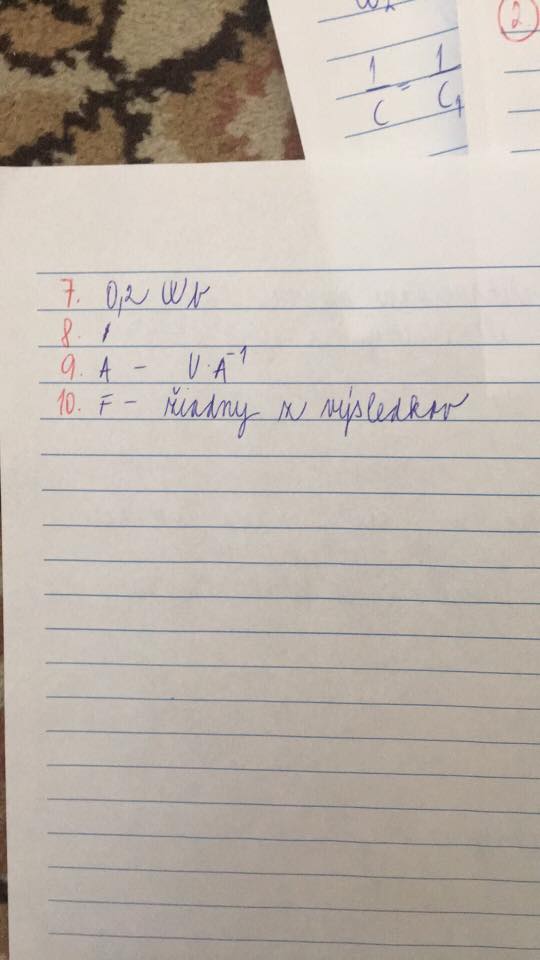 1/C = 1/C₁
2.
7. 0,2 Wb
8.
9. A - V·A⁻¹
10. F - žiadny z výsledkov